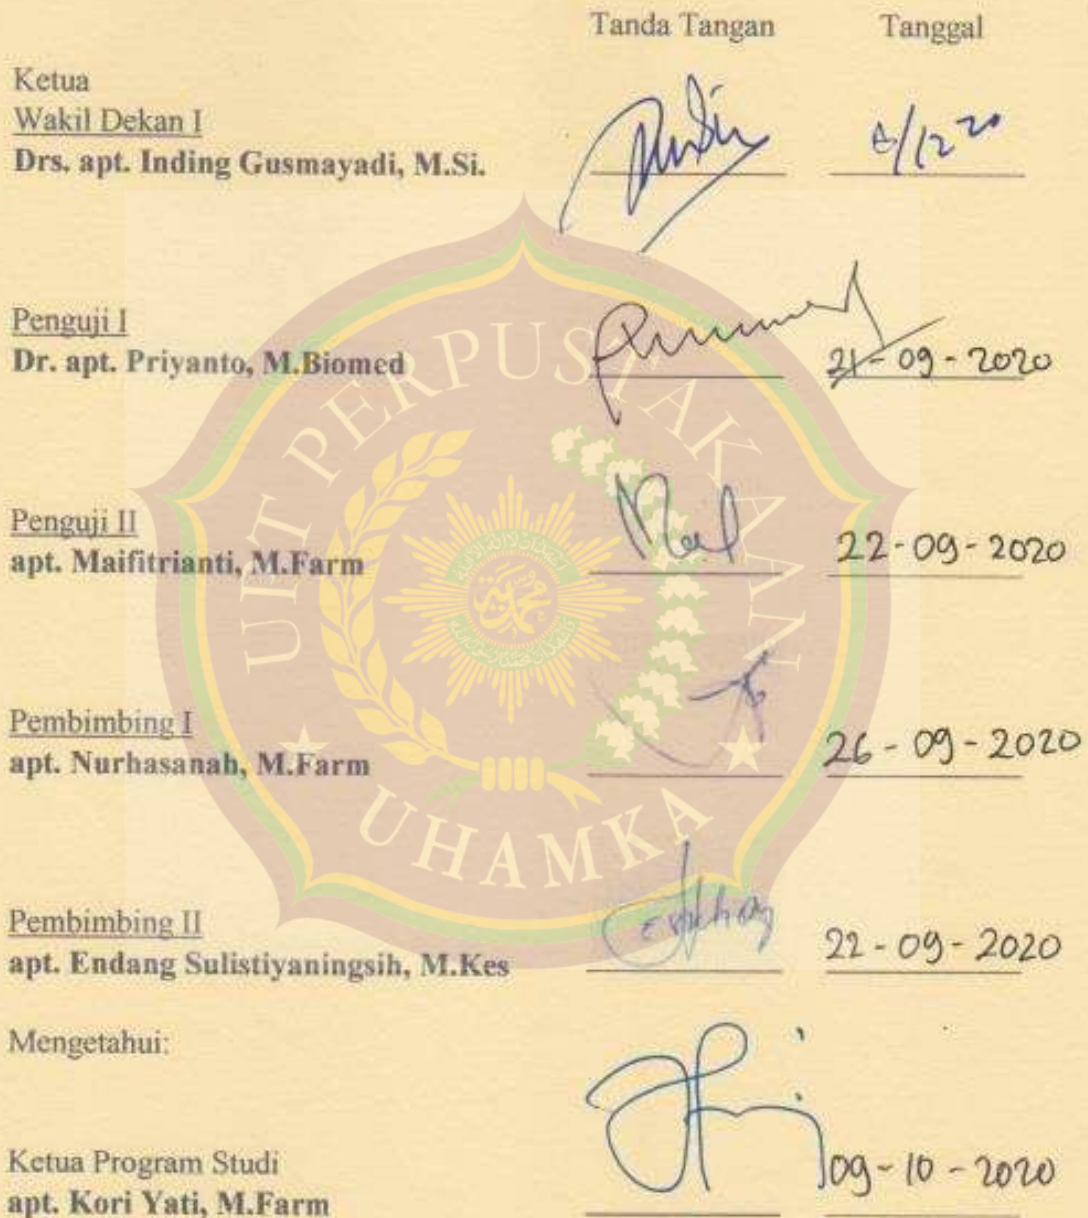 Tanda Tangan Tanggal
Ketua
Wakil Dekan I
Drs. apt. Inding Gusmayadi, M.Si. /12 20
Penguji I
Dr. apt. Priyanto, M.Biomed 21-09-2020
Penguji II
apt. Maifitrianti, M.Farm 22-09-2020
Pembimbing I
apt. Nurhasanah, M.Farm 26-09-2020
Pembimbing II
apt. Endang Sulistiyaningsih, M.Kes 22-09-2020
Mengetahui:
Ketua Program Studi
apt. Kori Yati, M.Farm 09-10-2020
UIT PERPUSTAKAAN
UHAMKA